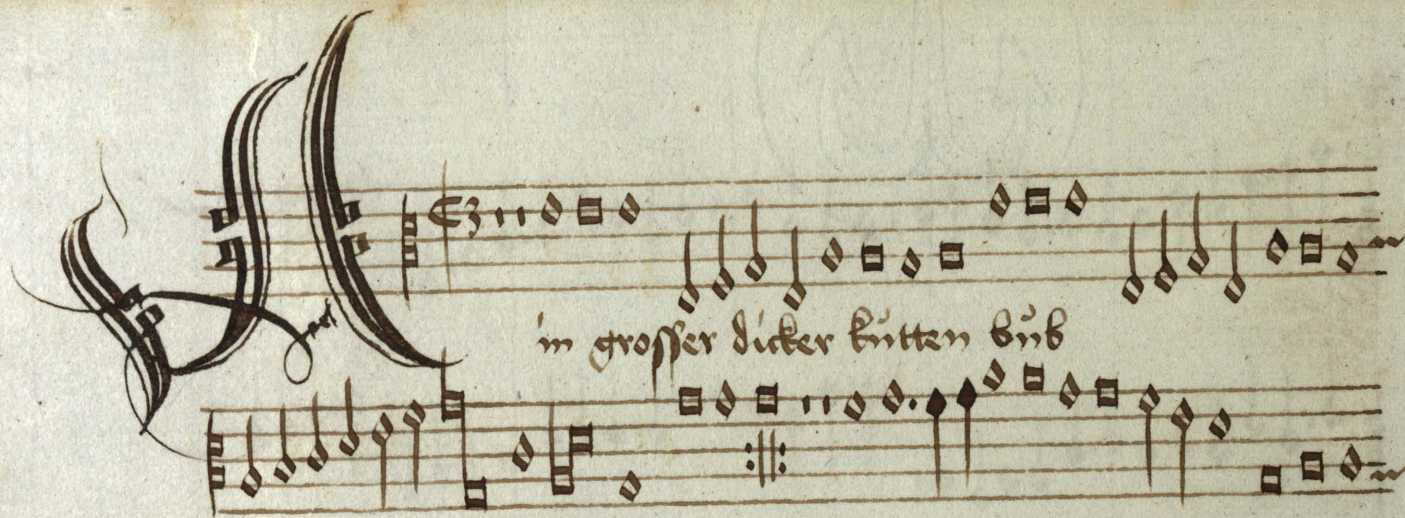 in grosser dicker kůtten bůb